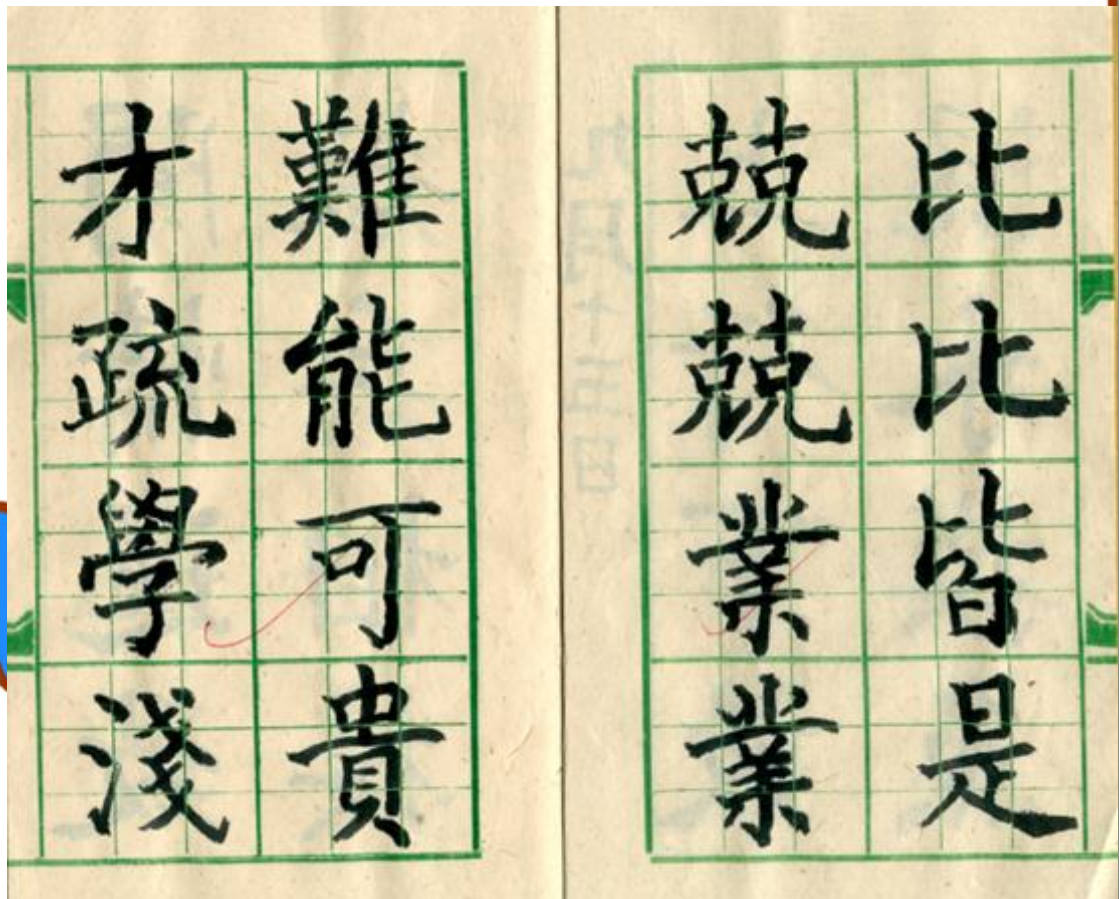 比比皆是
兢兢業業
難能可貴
才疏學淺